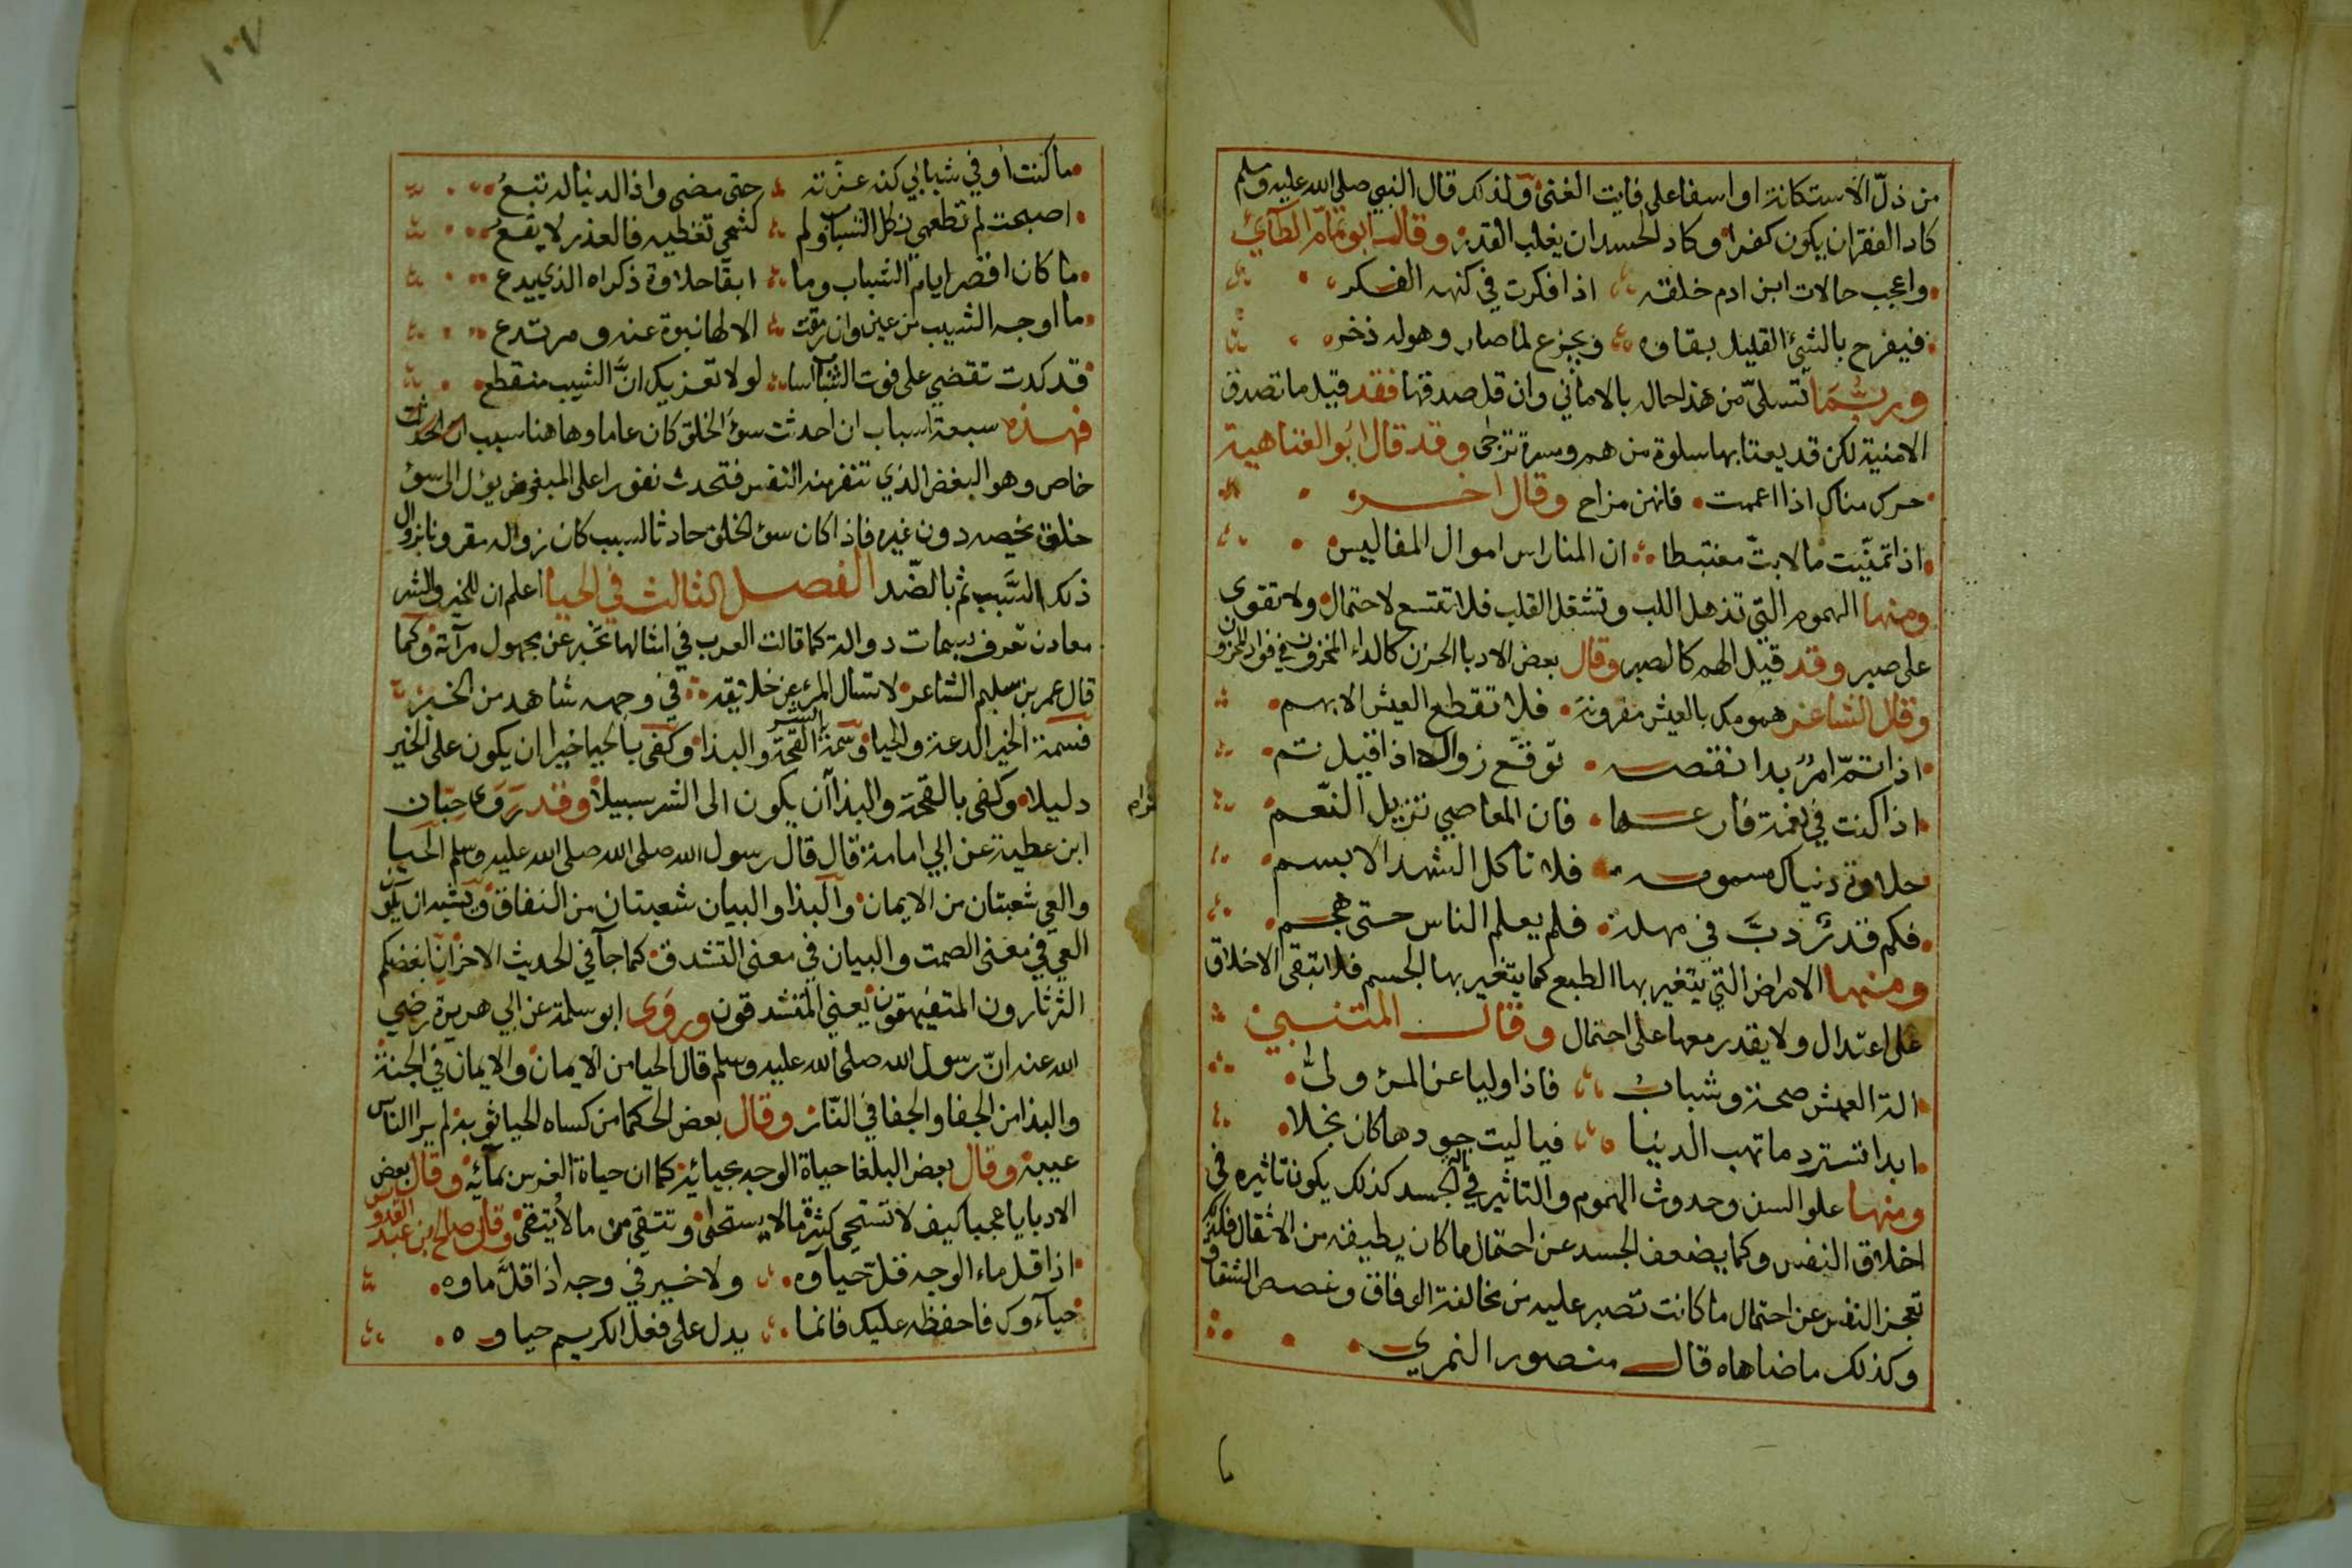 من ذلّ الاستكانة او اسفا على فايت الغنى ولذلك قال النبي صلى الله عليه وسلم
كاد الفقر ان يكون كفرا وكاد الحسد ان يغلب القدر وقال ابو تمام الطآئي
واعجب حالات ابن ادم خلقه اذا فكرت في كنهه الفكر
فيفرح بالشئ القليل بقاوه ويجزع لما صار وهو له ذخر
وربّما تسلىّ من هذا لحال بالاماني وان قل صدقها فقد قيل ما تصدق
الامنية لكن قد يعتا بها سلوة من هم ومسرة ترجى وقد قال ابو العتاهية
حرك مناك اذا اعممت فانهن مزاح وقال اخر
اذا تمنيّت مالا بتّ مغتبطا ان المنا راس اموال المفاليس
ومنها الهموم التي تذهل اللب وتشغل القلب فلا تتسع لاحتمال ولا تقوى
على صبر وقد قيل الهم كالصبر وقال بعض الادبا الحزن كالداء المخزون في فواد المحزون
وقال الشاعر همومك بالعيش مقرونة فلا تقطع العيش الا بهم
اذا تمّ امر بدا نقصه توقّع زوالا اذا قيل تم
اذا كنت في نعمة فارعها فان المعاصي تزيل النّعم
حلاوة دنياك مسمومه فلا تاكل الشهد الا بسم
فكم قدر دبّ في مهلة فلم يعلم الناس حتى هجم
ومنها الامراض التي يتغير بها الطبع كما يتغير بها الجسم فلا تبقى الاخلاق
على اعتدال ولا يقدر معها على احتمال وقال المتنبي
الة العيش صحة وشباب فاذا وليا عن المرء ولىّ
ابدا تسترد ما تهب الدنيا فيا ليت جودها كان بخلا
ومنها علو السن وحدوث الهموم والتاثير في الجسد كذلك يكون تاثيره في
اخلاق النفس وكما يضعف الجسد عن احتمال ما كان يطيقه من الاثقال فكذلك
تعجز النفس عن احتمال ما كانت تصبر عليه من مخالفة الوفاق وغصص الشقاق
وكذلك ما ضاهاه قال منصور النمري
١٠٧
ما كنت اوفي شبابي كنه عزته حتى مضى واذا الدنيا له تبع
اصبحت لم تطعمي ثكل الشباب ولم تشجى تغطيه فالعذر لا يقع
ما كان اقصر ايام الشباب وما ابقا حلاوة ذكراه الذي يدع
ما اوجه الشيب من عين وان رمقت الا لها نبوة عنه ومرتدع
قد كدت تقضي على فوت الشباب اسا لولا تعزيك انّ الشيب منقطع
فهذه سبعة اسباب ان احدثت سؤ الخلق كان عاما وهاهنا سبب
خاص وهو البغض الذي تنفر منه النفس فتحدث نفورا على المبغوض يؤل الى سؤ
خلق يخصه دون غيره فاذا كان سؤ الخلق حادثا لسبب كان زواله مقرونا بزوال
ذلك السّبب ثم بالضّد الفصل الثالث في الحيا اعلم ان للخير والشر
معادن تعرف بسمات دوالة كما قالت العرب في امثالها تخبر عن مجهول مرآته وكما
قال عمر بن سليم الشاعر لا تسال المرء عن خلايقه في وجهه شاهد من الخبر
فسمة الخير الدعة والحيا وسمة الشر القحة والبذا وكفى بالحيا خيرا ان يكون على الخير
دليلا وكفى بالقحة والبذا آن يكون الى الشر سبيلا وقد روى حبّان
ابن عطية عن ابي امامة قال قال رسول الله صلى الله صلى الله عليه وسلم الحيا
والعي شعبتان من الايمان والبذا والبيان شعبتان من النفاق ويشبه ان يكون
العي في معنى الصمت والبيان في معنى التشدق كما جآ في الحديث الاخر ان ابغضكم
الثرثارون المتفيهقون يعني المتشدقون وروى ابو سلمة عن ابي هريرة رضي
الله عنه انّ رسول الله صلى الله عليه وسلم قال الحيا من الايمان والايمان في الجنة
والبذا من الجفا والجفا في النّار وقال بعض الحكما من كساه الحيا ثوبه لم يرا الناس
عيبه وقال بعض البلغا حياة الوجه بحيائه كما ان حياة الغرس بمآئه وقال بعض
الادبا يا عجبا كيف لا تستحي كثرة ما لا يستحى وتتقي من ما لا يتقى وقال صالح ابن عبد القدوس
اذا قل ماء الوجه قلّ حياوه ولا خير في وجه اذا قلّ ماوه
حيآءك فاحفظه عليك فانما يدل على فعل الكريم حياوه